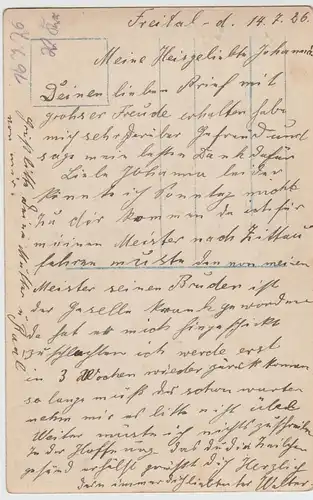 Freital - d. 14.7.26.
Meine Heisgeliebte Johanna
Deinen lieben Brief mit
grohser Freude erhalten habe
mich sehr darüber gefreud und
sage mein besten Dank dafür
Liebe Johanna leider
könnte ich Sonntag nicht
zu dir kommen da ich für
meinen Meister nach Zittau
fahren muste den von meinen
Meister seinen Bruder ist
der Geselle krank geworden
da hat er mich hingeschickt
zu schlachten ich werde erst
in 3 Wochen wieder zurück kommen
so lange must du schon warten
nehm mir es bitte nicht übel
Weiter wüste ich nichts zu schreiben
in der Hoffnung das du die Zeilchen
gesund erhälst grühst dich Herzlich
dein immer dich liebender Walter